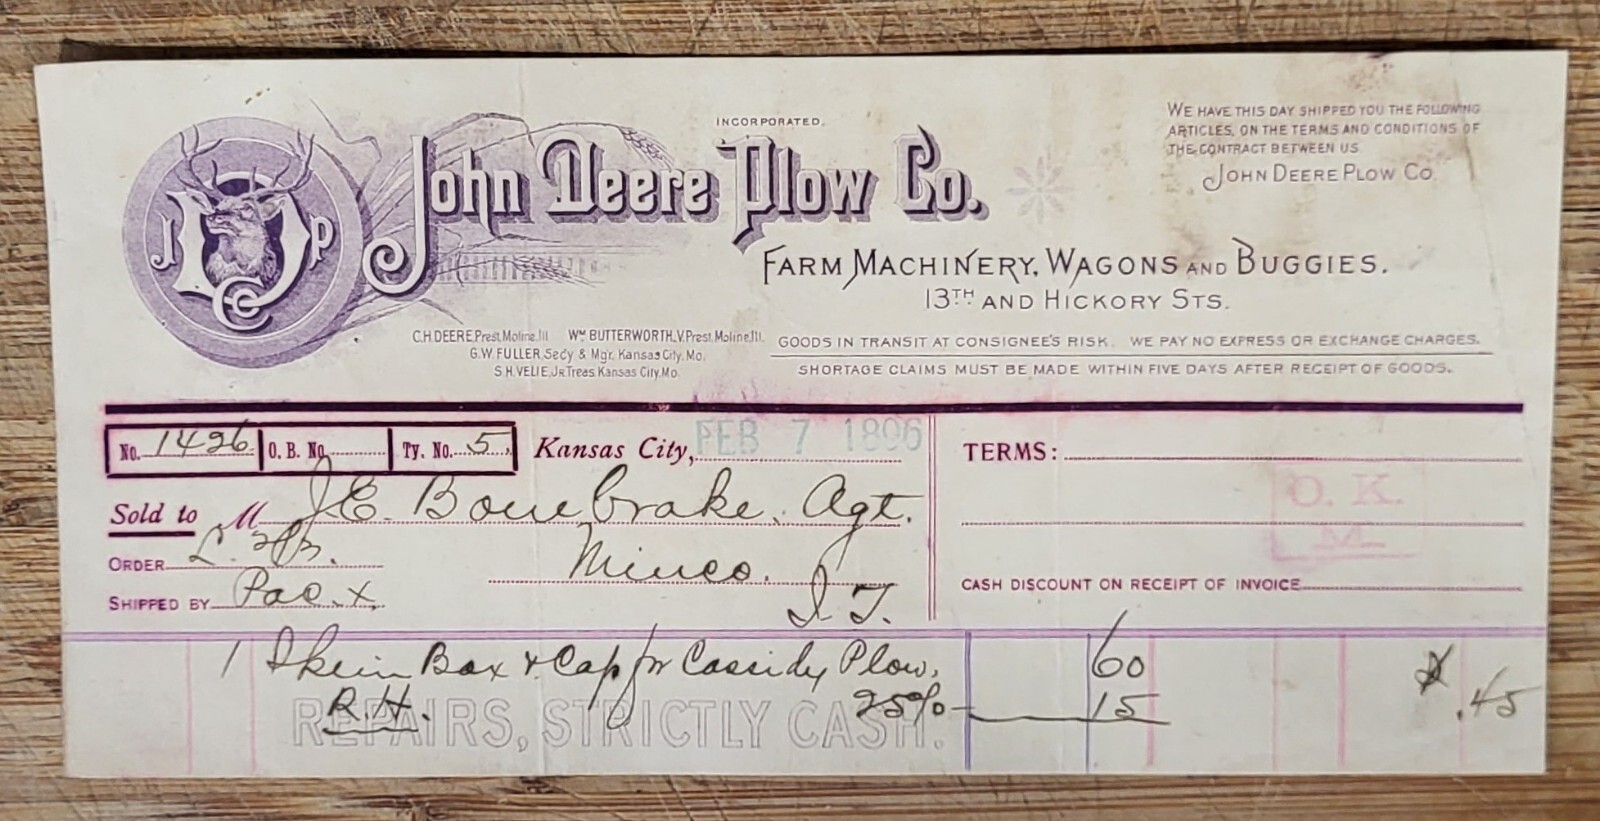 INCORPORATED.
John Deere Plow Co.
J D P Co
WE HAVE THIS DAY SHIPPED YOU THE FOLLOWING
ARTICLES, ON THE TERMS AND CONDITIONS OF
THE CONTRACT BETWEEN US
JOHN DEERE PLOW CO.
FARM MACHINERY, WAGONS AND BUGGIES.
13TH AND HICKORY STS.
C.H.DEERE, Prest, Moline, Ill. WM BUTTERWORTH, V. Prest. Moline, Ill.
G.W. FULLER, Secy & Mgr. Kansas City, Mo.
S.H. VELIE, Jr. Treas. Kansas City, Mo.
GOODS IN TRANSIT AT CONSIGNEE'S RISK. WE PAY NO EXPRESS OR EXCHANGE CHARGES.
SHORTAGE CLAIMS MUST BE MADE WITHIN FIVE DAYS AFTER RECEIPT OF GOODS.
No. 1426 O. B. No. Ty. No. 5. Kansas City, FEB 7 1896
TERMS:
O. K.
M.
Sold to M J E. Bonebrake. Agt.
ORDER
Minco.
I. T.
SHIPPED BY Pac. X.
CASH DISCOUNT ON RECEIPT OF INVOICE
1 Skein Box & Cap for Cassidy Plow, 60
R.H. 25% 15 .45
REPAIRS, STRICTLY CASH.